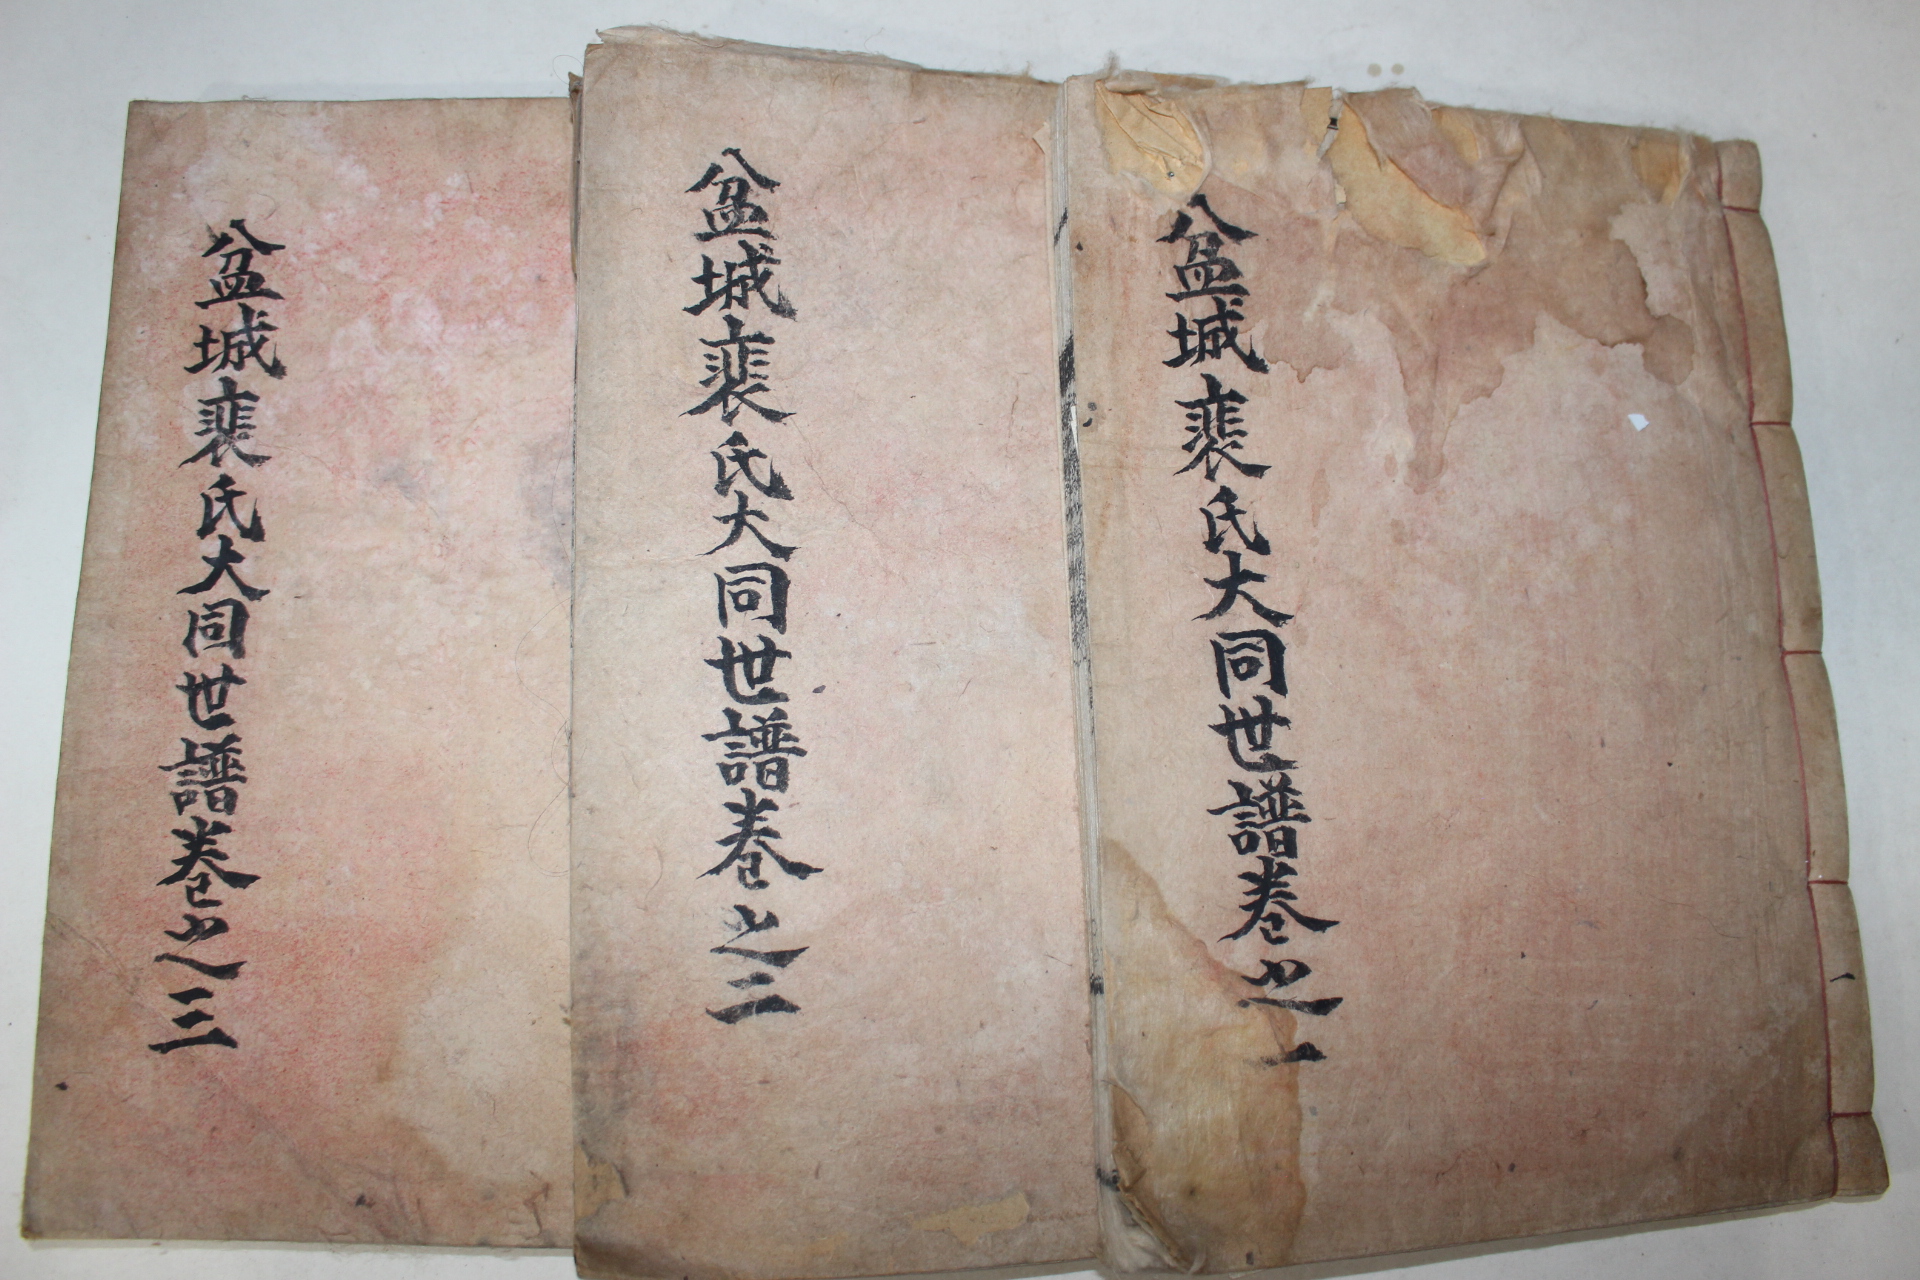 盆城裵氏大同世譜卷之一
一
盆城裵氏大同世譜卷之二
盆城裵氏大同世譜卷之三